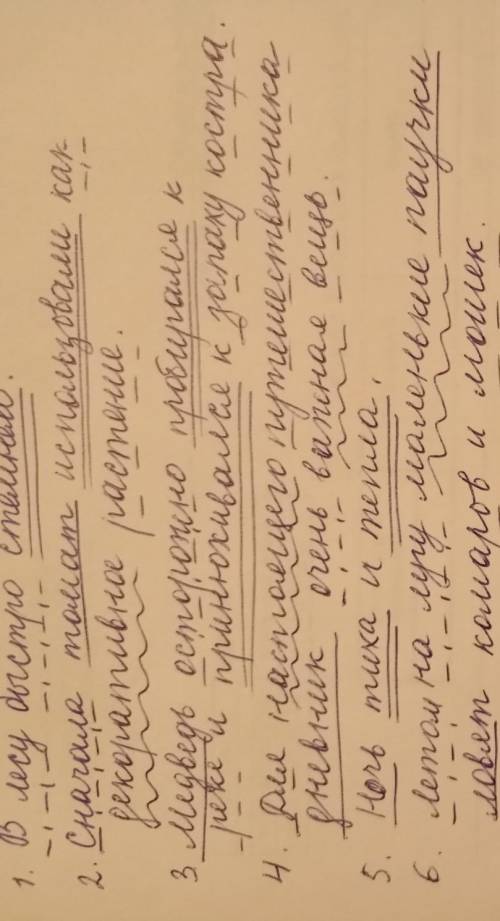 1. В лесу быстро стемнело.
2. Сначала томат использовали как
декоративное растение.
3 Медведь осторожно пробирался к
реке и принюхивался к запаху костра.
4. Для настоящего путешественника
дневник очень важная вещь.
5. Ночь тиха и тепла.
6. летом на лугу маленькие паучки
ловят комаров и мошек.